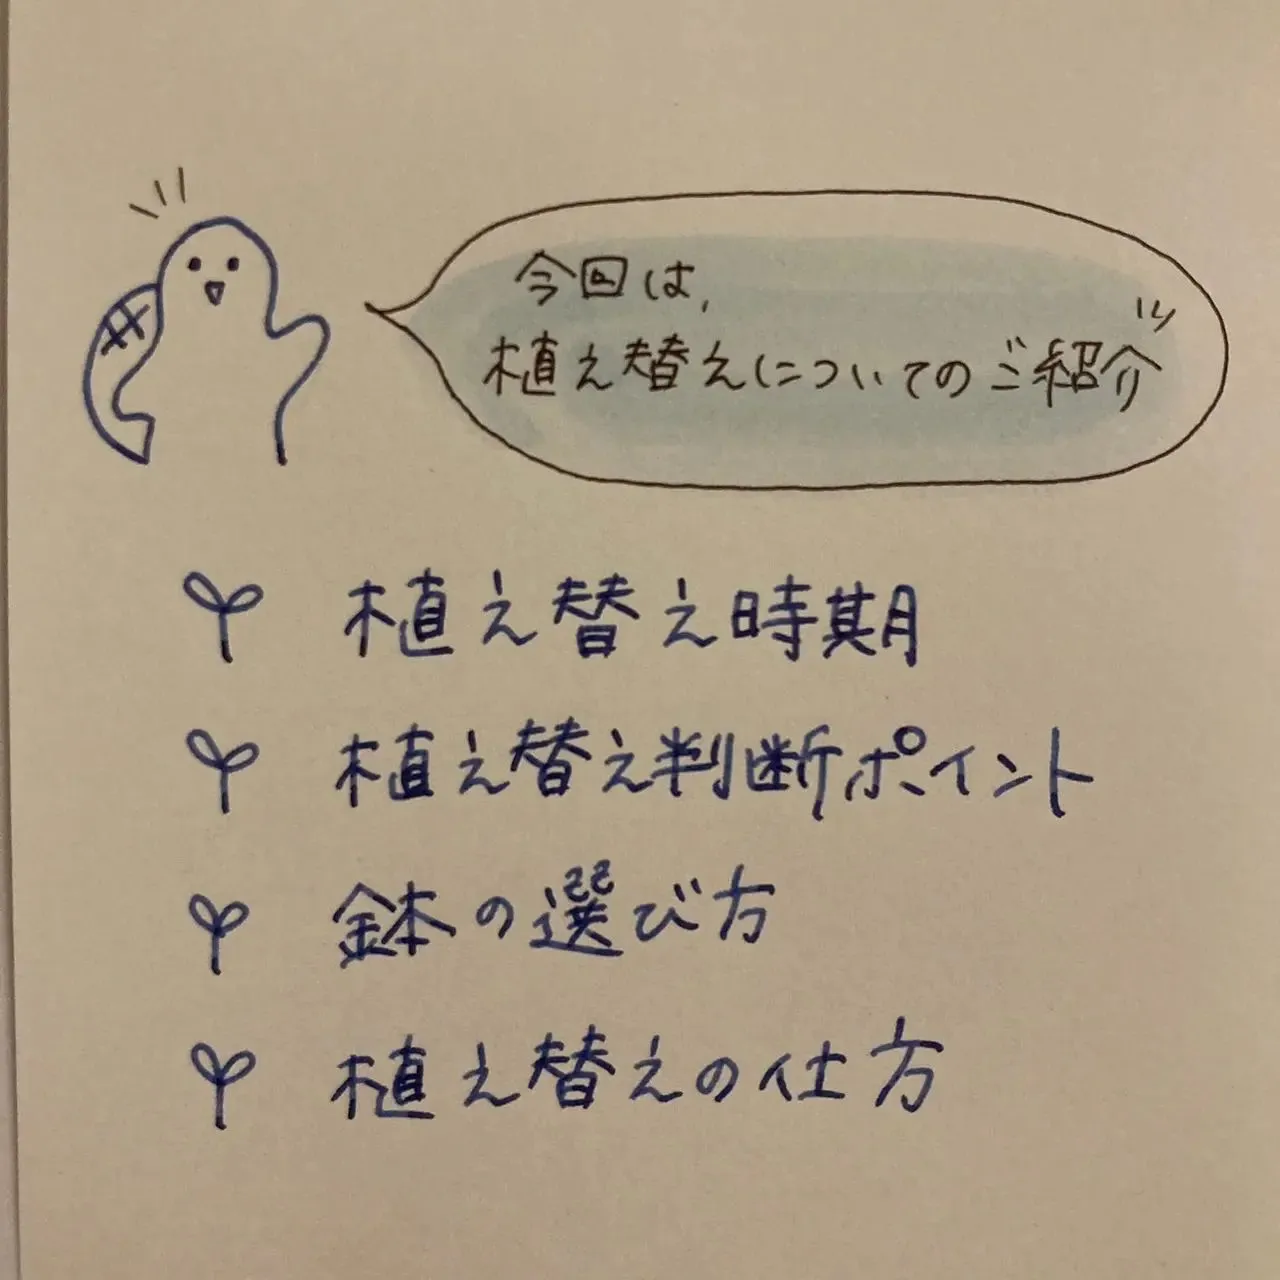 今回は、
植え替えについてのご紹介
植え替え時期
植え替え判断ポイント
鉢の選び方
植え替えの仕方